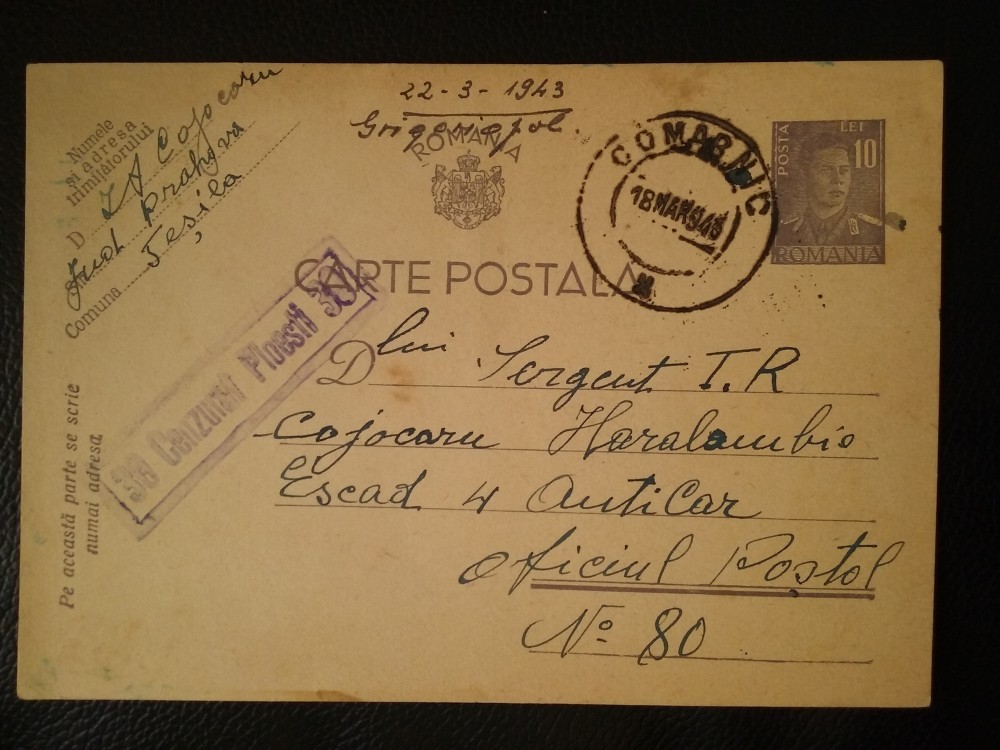 22-3-1943
Grigoriopol.
ROMÂNIA
Numele
și adresa
trimițătorului
D I A Cojocaru
Jud Prahova
Seșila
Comuna
COMARNIC
18 MAR 943
POSTA LEI
10
ROMANIA
CARTE POSTALA
Cenzurat Ploesti
Dlui Sergent T.R
Cojocaru Haralambie
Escad 4 AntiCar
Oficiul Poștal
No 80
Pe această parte se scrie
numai adresa